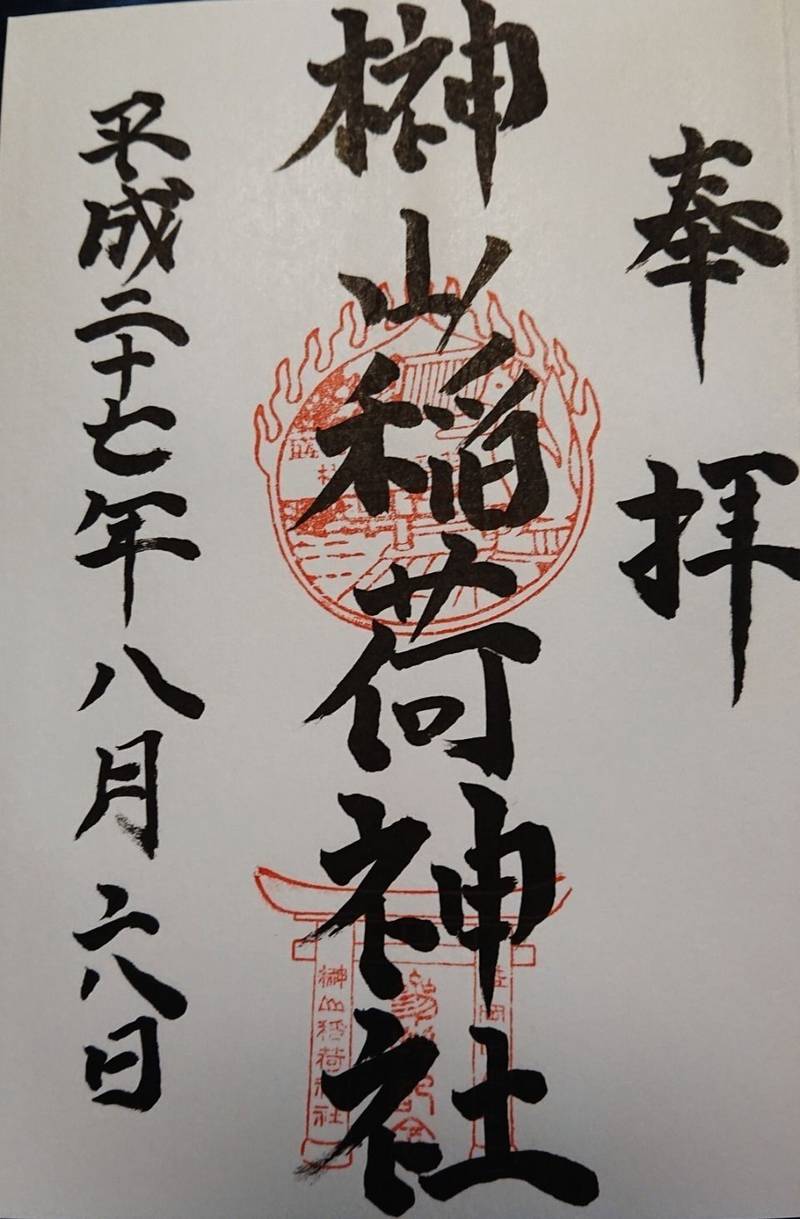 奉拝
榊山稲荷神社
平成二十七年八月二八日
榊山稲荷神社